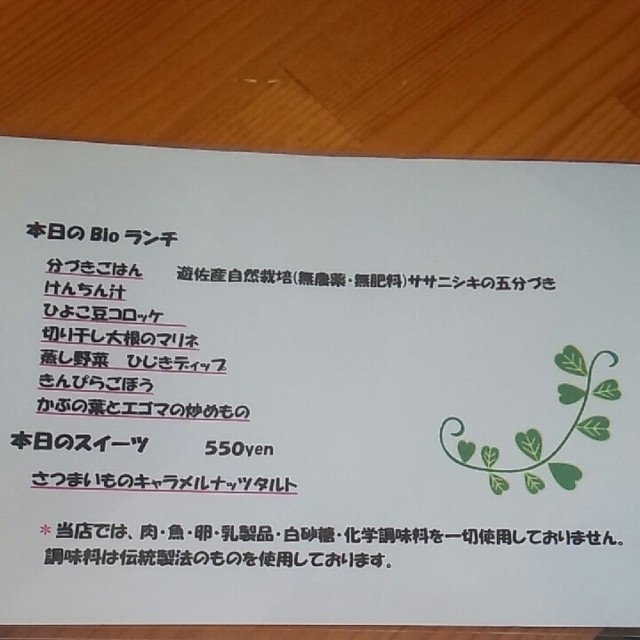 本日のBioランチ
分づきごはん 遊佐産自然栽培(無農薬・無肥料)ササニシキの五分づき
けんちん汁
ひよこ豆コロッケ
切り干し大根のマリネ
蒸し野菜 ひじきディップ
きんぴらごぼう
かぶの葉とエゴマの炒めもの
本日のスイーツ 550yen
さつまいものキャラメルナッツタルト
*当店では、肉・魚・卵・乳製品・白砂糖・化学調味料を一切使用しておりません。
調味料は伝統製法のものを使用しております。